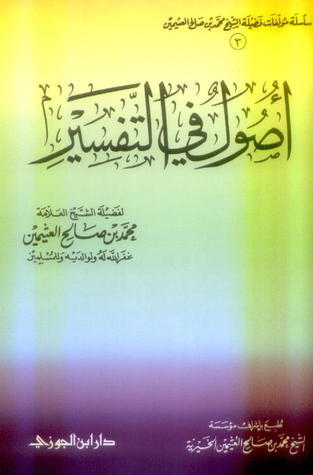 سلسلة مؤلفات فضيلة الشيخ محمد بن صالح العثيمين
٣
أصول في التفسير
لفضيلة الشيخ العلامة
محمد بن صالح العثيمين
غفر الله له ولوالديه وللمسلمين
طبع بإشراف مؤسسة
الشيخ محمد بن صالح العثيمين الخيرية
دار ابن الجوزي